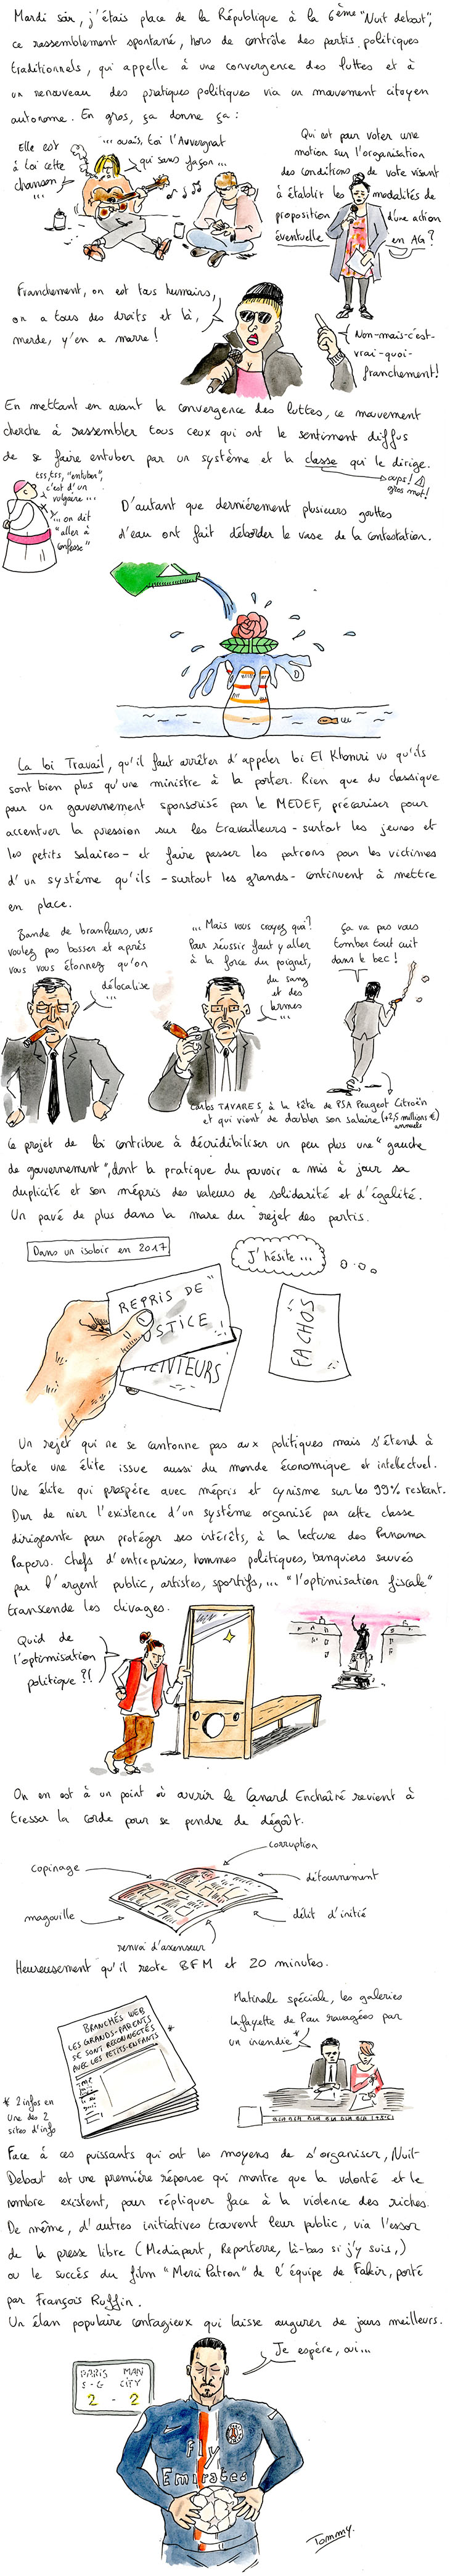 Mardi soir, j'étais place de la République à la 6ème "Nuit debout",
ce rassemblement spontané, hors de contrôle des partis politiques
traditionnels, qui appelle à une convergence des luttes et à
un renouveau des pratiques politiques via un mouvement citoyen
autonome. En gros, ça donne ça :
Elle est
à toi cette
chanson
...
... ouais, toi l'Auvergnat
qui sans façon ...
Qui est pour voter une
motion sur l'organisation
des conditions de vote visant
à établir les modalités de
proposition d'une action
éventuelle en AG ?
Franchement, on est tous humains,
on a tous des droits et là,
merde, y'en a marre !
Non-mais-c'est-
vrai-quoi-
franchement!
En mettant en avant la convergence des luttes, ce mouvement
cherche à rassembler tous ceux qui ont le sentiment diffus
de se faire entuber par un système et la classe qui le dirige.
oups!
gros mot!
tss, tss, "entuber",
c'est d'un
vulgaire ...
... on dit
"aller à
confesse"
D'autant que dernièrement plusieurs gouttes
d'eau ont fait déborder le vase de la contestation.
La loi Travail, qu'il faut arrêter d'appeler loi El Khomri vu qu'ils
sont bien plus qu'une ministre à la porter. Rien que du classique
pour un gouvernement sponsorisé par le MEDEF, précariser pour
accentuer la pression sur les travailleurs - surtout les jeunes et
les petits salaires - et faire passer les patrons pour les victimes
d'un système qu'ils - surtout les grands - continuent à mettre
en place.
Bande de branleurs, vous
voulez pas bosser et après
vous vous étonnez qu'on
délocalise
...
... Mais vous croyez quoi?
Pour réussir faut y aller
à la force du poignet,
du sang
et des
larmes
...
Ça va pas vous
tomber tout cuit
dans le bec !
Carlos TAVARES, à la tête de PSA Peugeot Citroën
et qui vient de doubler son salaire (+2,5 millions €
annuels
Ce projet de loi contribue à décridibiliser un peu plus une "gauche
de gouvernement", dont la pratique du pouvoir a mis à jour sa
duplicité et son mépris des valeurs de solidarité et d'égalité.
Un pavé de plus dans la mare du rejet des partis.
Dans un isoloir en 2017
J'hésite ...
REPRIS DE
JUSTICE
MENTEURS
FACHOS
Un rejet qui ne se cantonne pas aux politiques mais s'étend à
toute une élite issue aussi du monde économique et intellectuel.
Une élite qui prospère avec mépris et cynisme sur les 99% restant.
Dur de nier l'existence d'un système organisé par cette classe
dirigeante pour protéger ses intérêts, à la lecture des Panama
Papers. Chefs d'entreprises, hommes politiques, banquiers sauvés
par l'argent public, artistes, sportifs, ... "l'optimisation fiscale"
transcende les clivages.
Quid de
l'optimisation
politique ?!
On en est à un point où ouvrir le Canard Enchaîné revient à
tresser la corde pour se pendre de dégoût.
corruption
copinage
détournement
magouille
délit d'initié
renvoi d'ascenseur
Heureusement qu'il reste BFM et 20 minutes.
BRANCHÉS WEB
LES GRANDS-PARENTS
SE SONT RECONNECTÉS
AVEC LES PETITS-ENFANTS
*
Matinale spéciale, les galeries
Lafayette de Pau ravagées par
un incendie*
BLA BLA BLA BLA BLA BLA
* 2 infos en
une des 2
sites d'info
Face à ces puissants qui ont les moyens de s'organiser, Nuit
Debout est une première réponse qui montre que la volonté et le
nombre existent, pour répliquer face à la violence des riches.
De même, d'autres initiatives trouvent leur public, via l'essor
de la presse libre (Mediapart, Reporterre, là-bas si j'y suis,)
ou le succès du film "Merci Patron" de l'équipe de Fakir, porté
par François Ruffin.
Un élan populaire contagieux qui laisse augurer de jours meilleurs.
Je espère, oui...
PARIS
S-G
MAN
CITY
2 - 2
Fly
Emirates
Tommy.